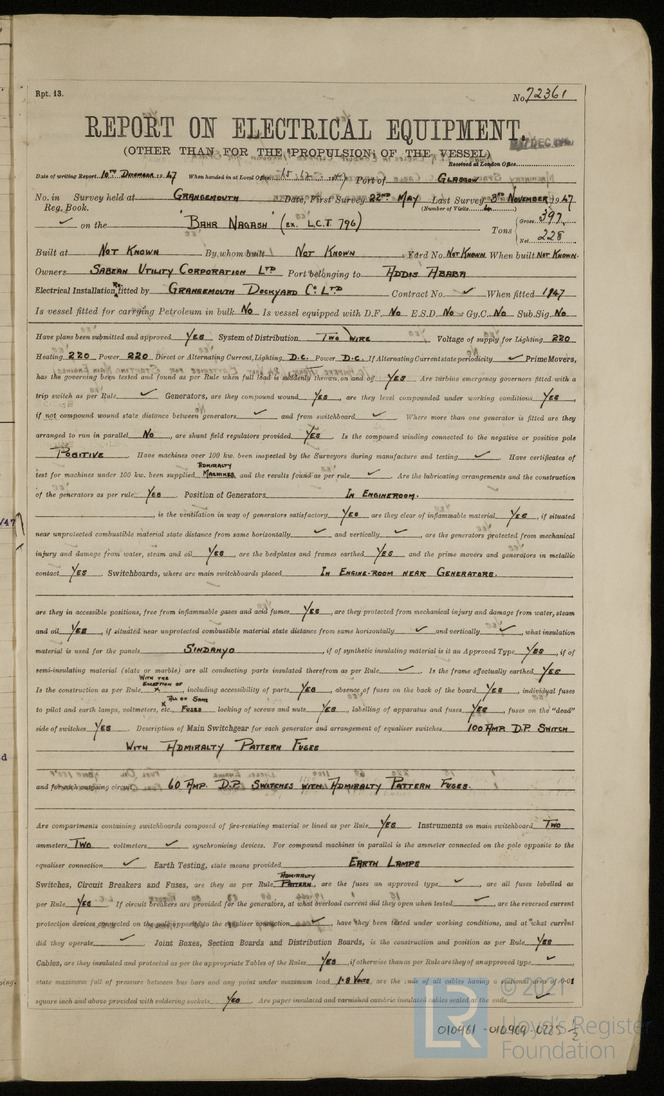 Rpt. 13.
No. 72361
REPORT ON ELECTRICAL EQUIPMENT.
(OTHER THAN FOR THE PROPULSION OF THE VESSEL)
Received at London Office
Date of writing Report 10TH DECEMBER 1947 When handed in at Local Office 19 Port of GLASGOW
No. in Survey held at GRANGEMOUTH Date, First Survey 22ND MAY Last Survey 3RD NOVEMBER 1947
Reg. Book. (Number of Visits 4)
✓ on the 'BAHR NAGASH' (EX. L.C.T. 796) Tons { Gross 397 Net 228
Built at NOT KNOWN By whom built NOT KNOWN Yard No. NOT KNOWN When built NOT KNOWN
Owners SABEAN UTILITY CORPORATION LTD Port belonging to ADDIS ABABA
Electrical Installation fitted by GRANGEMOUTH DOCKYARD CO. LTD Contract No. ✓ When fitted 1947
Is vessel fitted for carrying Petroleum in bulk NO Is vessel equipped with D.F. NO E.S.D. NO Gy.C. NO Sub.Sig. NO
Have plans been submitted and approved YES System of Distribution TWO WIRE Voltage of supply for Lighting 220
Heating 220 Power 220 Direct or Alternating Current, Lighting D.C. Power D.C. If Alternating Current state periodicity ✓ Prime Movers,
has the governing been tested and found as per Rule when full load is suddenly thrown on and off YES Are turbine emergency governors fitted with a
trip switch as per Rule ✓ Generators, are they compound wound YES, are they level compounded under working conditions YES,
if not compound wound state distance between generators ✓ and from switchboard ✓ Where more than one generator is fitted are they
arranged to run in parallel NO, are shunt field regulators provided YES Is the compound winding connected to the negative or positive pole
POSITIVE Have machines over 100 kw. been inspected by the Surveyors during manufacture and testing ✓ Have certificates of
test for machines under 100 kw. been supplied ADMIRALTY MACHINES and the results found as per rule ✓ Are the lubricating arrangements and the construction
of the generators as per rule YES Position of Generators IN ENGINEROOM.
, is the ventilation in way of generators satisfactory YES are they clear of inflammable material YES, if situated
near unprotected combustible material state distance from same horizontally ✓ and vertically ✓, are the generators protected from mechanical
injury and damage from water, steam and oil YES, are the bedplates and frames earthed YES and the prime movers and generators in metallic
contact YES Switchboards, where are main switchboards placed IN ENGINE-ROOM NEAR GENERATORS.
are they in accessible positions, free from inflammable gases and acid fumes YES, are they protected from mechanical injury and damage from water, steam
and oil YES, if situated near unprotected combustible material state distance from same horizontally ✓ and vertically ✓, what insulation
material is used for the panels SINDANYO, if of synthetic insulating material is it an Approved Type YES, if of
semi-insulating material (slate or marble) are all conducting parts insulated therefrom as per Rule ✓ Is the frame effectually earthed YES
WITH THE EXCEPTION OF
Is the construction as per Rule X, including accessibility of parts YES, absence of fuses on the back of the board YES, individual fuses
to pilot and earth lamps, voltmeters, etc. FUSES locking of screws and nuts YES, labelling of apparatus and fuses YES, fuses on the "dead"
side of switches YES Description of Main Switchgear for each generator and arrangement of equaliser switches 100 AMP. D.P. SWITCH
WITH ADMIRALTY PATTERN FUSES
and for each outgoing circuit 60 AMP. D.P. SWITCHES WITH ADMIRALTY PATTERN FUSES.
Are compartments containing switchboards composed of fire-resisting material or lined as per Rule YES Instruments on main switchboard TWO
ammeters TWO voltmeters ✓ synchronising devices. For compound machines in parallel is the ammeter connected on the pole opposite to the
equaliser connection ✓ Earth Testing, state means provided EARTH LAMPS
Switches, Circuit Breakers and Fuses, are they as per Rule ADMIRALTY PATTERN, are the fuses an approved type ✓, are all fuses labelled as
per Rule YES If circuit breakers are provided for the generators, at what overload current did they open when tested ✓, are the reversed current
protection devices connected on the pole opposite to the equaliser connection ✓, have they been tested under working conditions, and at what current
did they operate ✓ Joint Boxes, Section Boards and Distribution Boards, is the construction and position as per Rule YES
Cables, are they insulated and protected as per the appropriate Tables of the Rules YES if otherwise than as per Rule are they of an approved type ✓,
state maximum fall of pressure between bus bars and any point under maximum load 1.8 VOLTS, are the ends of all cables having a sectional area of 0.01
square inch and above provided with soldering sockets YES Are paper insulated and varnished cambric insulated cables sealed at the ends ✓
010961-010969-0225 ½
© 2021
LR
Lloyd's Register
Foundation